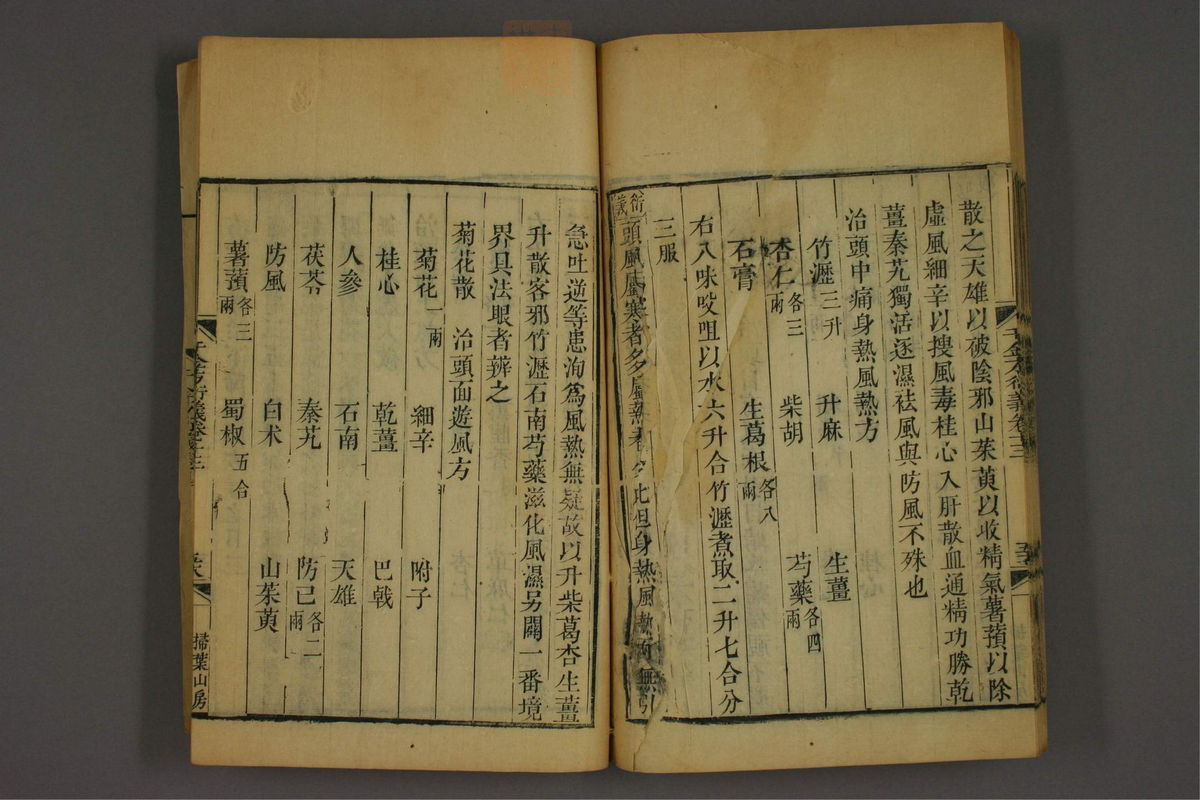 散之天雄以破陰邪山茱萸以收精氣薯蕷以除
虛風細辛以搜風毒桂心入肝散血通精功勝乾
薑秦艽獨活逐濕袪風與防風不殊也
治頭中痛身熱風熱方
竹瀝三升 升麻 生薑
杏仁各三兩 柴胡 芍藥各四兩
石膏 生葛根各八兩
右八味㕮咀以水六升合竹瀝煮取二升七合分
三服
衍義頭風屬寒者多屬熱者少此但身熱風熱而無
急吐逆等患洵爲風熱無疑故以升柴葛杏生薑
升散客邪竹瀝石南芍藥滋化風濕另闢一番境
界具法眼者辨之
菊花散 治頭面遊風方
菊花一兩 細辛 附子
桂心 乾薑 巴戟
人參 石南 天雄
茯苓 秦艽 防己各二兩
防風 白术 山茱萸
薯蕷各三兩 蜀椒五合
千金方衍義卷十三
掃葉山房